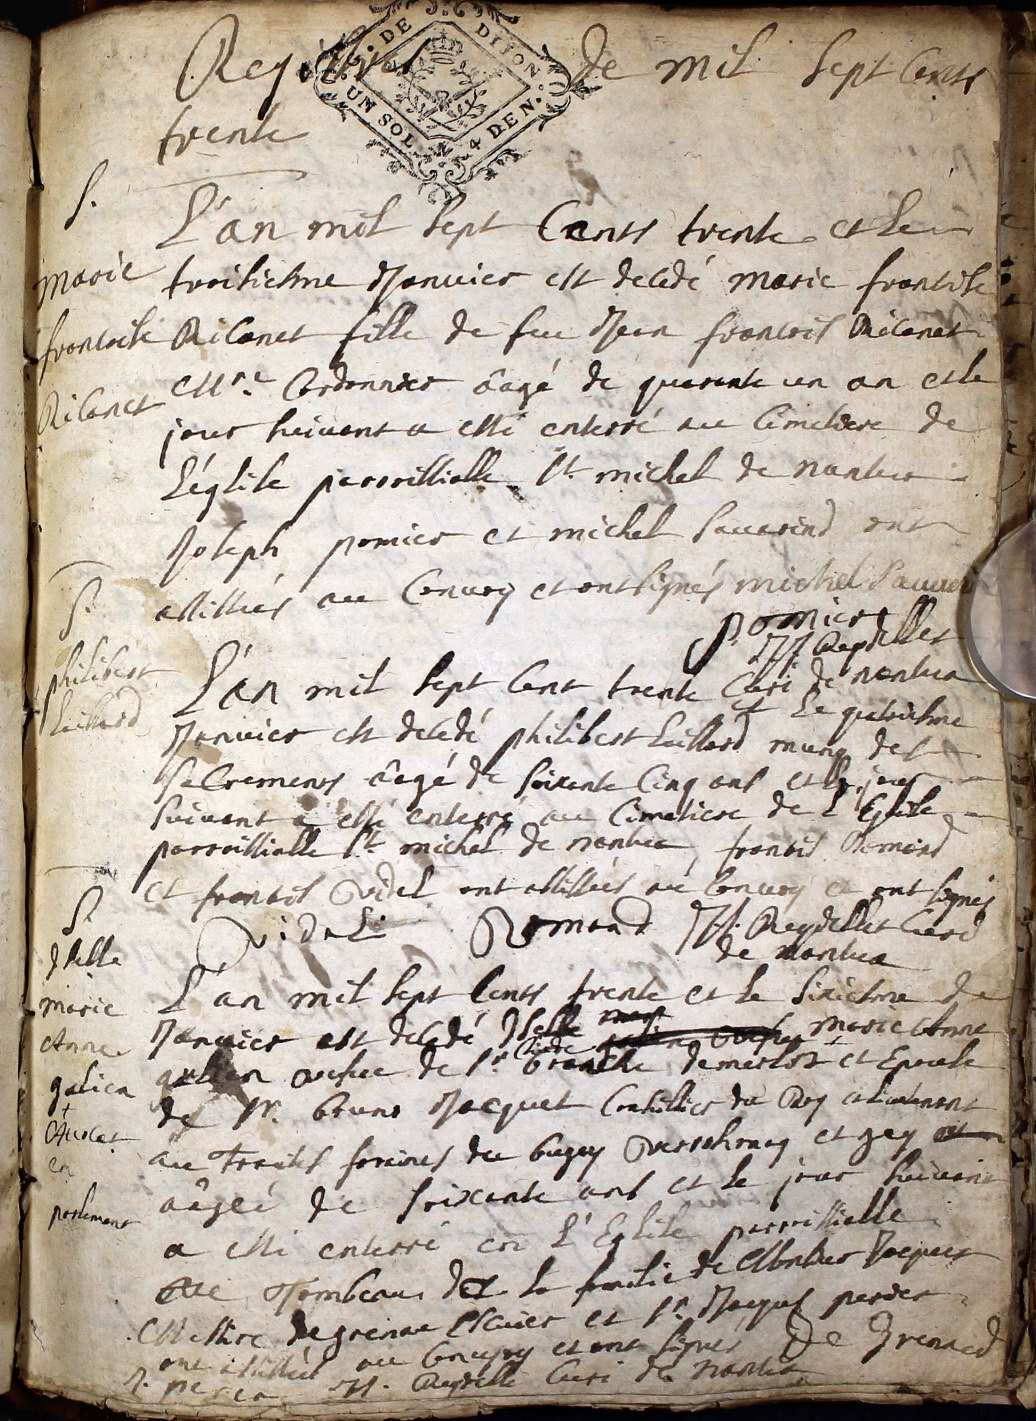 DE DIJON
UN SOL. 4 DEN.
Registre de mil sept cents
trente
S.
marie
francoise
Ricanet
L'an mil sept cents trente et le
troisiesme Janvier est decedé marie francoise
Ricanet fille de feu Jean francois Ricanet
Mre. Cordonnier âagé de quarente un an et le
jour suivant a esté enterré au cimetiere de
L'églize parroissialle St. michel de nantua
Joseph pomier et michel sauarind ont
assistés au convoy et ont signés michel Sauuarin
p. pomier
JJ. Reydellet
Curé de nantua
S.
philibert
L'an mil sept cent trente et le quatriesme
Janvier est decedé philibert muny des
sacrements âagé de soixente cinq ans et le jour
suivant a esté enterré au cimetiere de L'Eglise
parroissialle St. michel de nantua, francois Romand
et francois Vidal ont assistés au convoy et ont signés
Vidal Romand JJ. Reydellet Curé
de nantua
S.
dselle
marie
Anne
galien
Auocat
en
parlement
L'an mil sept cents trente et le sixiesme de
Janvier est decedé dselle marie Anne
galien vefue de Sr. Claude demerloz et Epouse
de Sr. bruno Jacquet Conseillier du Roy
au traites foraines du bugey Verromey et gex
aâgéé de soixente ans et le jour suivant
a esté enterré en L'Eglise parroissialle
au Tombeau de la famille de Monsieur Jacquet
Messire de grenaud Escuier et Sr. Jacques perder
ont assistés au convoy et ont signés De Grenaud
JJ. Reydellet Curé de Nantua